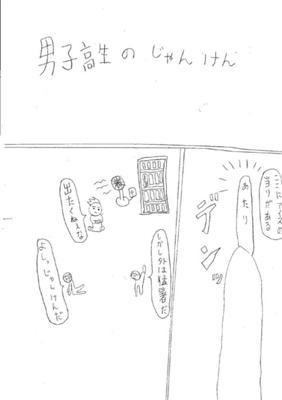 男子高生のじゃんけん
ここにアイスの
当りがある
あたり
デンッ
しかし外は猛暑だ
出たくねぇな
よしっじゃんけんだ